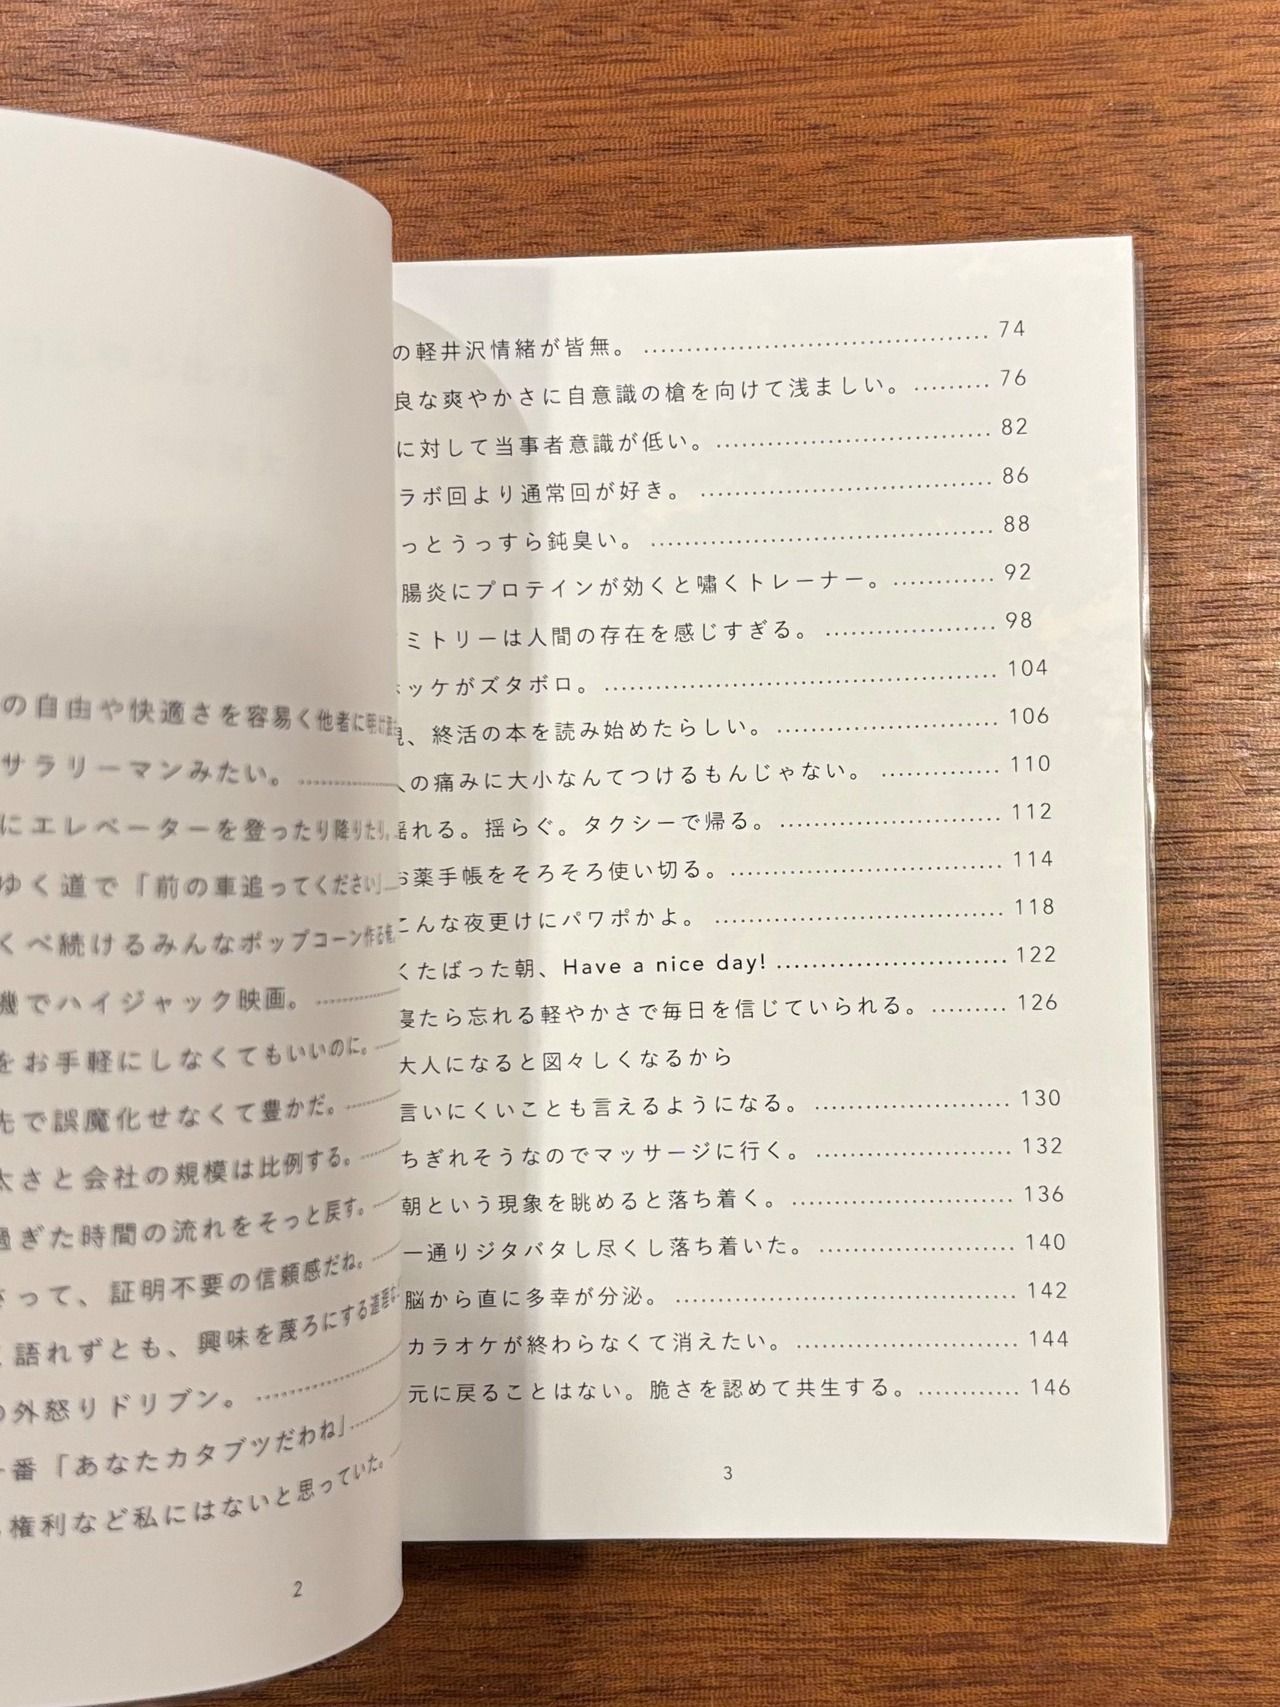 の自由や快適さを容易く他者に明け渡
サラリーマンみたい。
にエレベーターを登ったり降りたり。
ゆく道で「前の車追ってください」
くべ続けるみんなポップコーン作る
機でハイジャック映画。
をお手軽にしなくてもいいのに。
先で誤魔化せなくて豊かだ。
太さと会社の規模は比例する。
過ぎた時間の流れをそっと戻す。
さって、証明不要の信頼感だね。
語れずとも、興味を蔑ろにする道理な
の外怒りドリブン。
番「あなたカタブツだわね」
権利など私にはないと思っていた。
2
の軽井沢情緒が皆無。 74
良な爽やかさに自意識の槍を向けて浅ましい。 76
に対して当事者意識が低い。 82
ラボ回より通常回が好き。 86
っとうっすら鈍臭い。 88
腸炎にプロテインが効くと嘯くトレーナー。 92
ミトリーは人間の存在を感じすぎる。 98
ホッケがズタボロ。 104
親、終活の本を読み始めたらしい。 106
人の痛みに大小なんてつけるもんじゃない。 110
揺れる。揺らぐ。タクシーで帰る。 112
お薬手帳をそろそろ使い切る。 114
こんな夜更けにパワポかよ。 118
くたばった朝、Have a nice day! 122
寝たら忘れる軽やかさで毎日を信じていられる。 126
大人になると図々しくなるから
言いにくいことも言えるようになる。 130
ちぎれそうなのでマッサージに行く。 132
朝という現象を眺めると落ち着く。 136
一通りジタバタし尽くし落ち着いた。 140
脳から直に多幸が分泌。 142
カラオケが終わらなくて消えたい。 144
元に戻ることはない。脆さを認めて共生する。 146
3